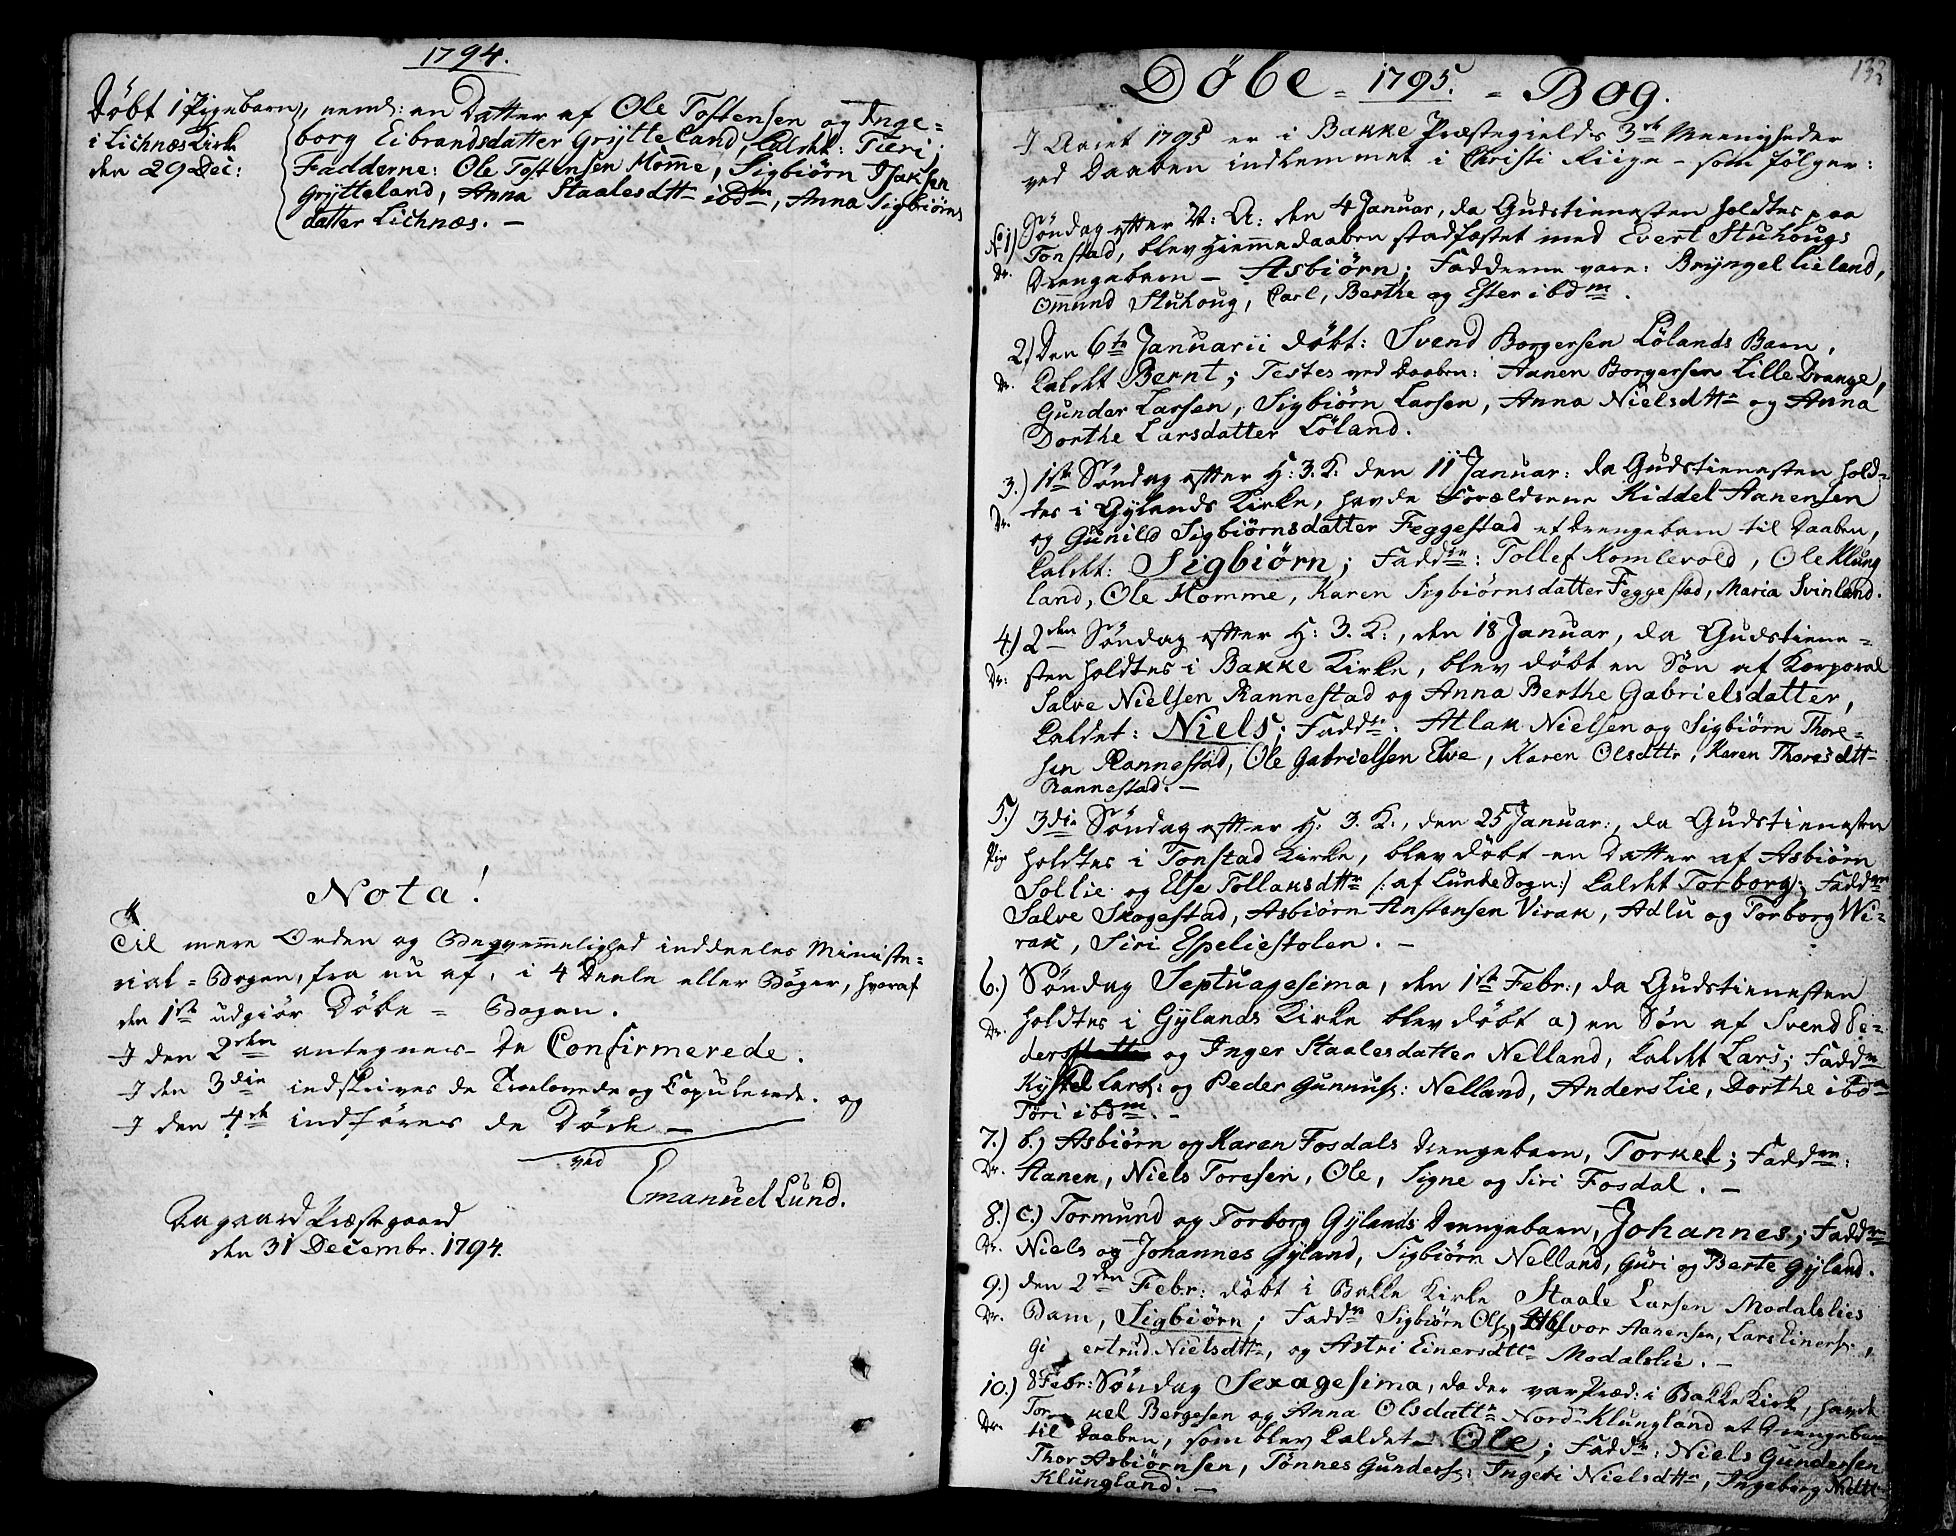 1794.
Döbt 1 Pigebarn, neml: en Datter af Ole Tostensen og Inge=
i Lichnæs Kirk borg Eibrandsdatter Grÿtteland, kaldet: Sieri;
den 29 Dec: Fadderne: Ole Tostensen Momme, Sigbiörn Isaksen
Grÿtteland, Anna Staalesdtt ibdm, Anna Sigbiörns
datter Lichnæs. —
Nota!
Til mere Orden og Beqvemmelighed inddeeles Ministe=
rial=Bogen, fra nu af, i 4 Deele eller Böger, hvoraf
den 1ste udgiör Döbe = Bogen.
I den 2den antegnes de Confirmerede.
I den 3die indskrives de Trolovede og Copulerede. og
I den 4de indföres de Döde —
ved
Emanuel Lund.
Aagaard Præstegaard
den 31 Decembr. 1794.
133
Döbe = 1795. = Bog.
I Aaret 1795 er i Bakke Præstegields 3de Meenigheder
ved Daaben indlemmet i Christi Riige – som fölger:
No 1) Söndag efter N: A: den 4 Januar, da Gudstienesten holdtes paa
Tonstad, blev hiemmedaaben stadfæstet med Evert Stuhougs
Dr. Drengebarn – Asbiörn; Fadderne vare: Brÿngel Lieland,
Ommund Stuhoug, Carl, Berthe og Ester ibdm.
2) Den 6te Januarii döbt: Svend Borgersen Lölands Barn,
Dr. kaldet Bernt; Testes ved Daaben: Aanen Borgersen Lille Drange,
Gunder Larsen, Sigbiörn Larsen, Anna Nielsdtt og Anna
Dorthe Larsdatter Löland.
3.) 1ste Söndag efter H: 3. K: den 11 Januar: da Gudstienesten hold=
Dr. tes i Gÿlands Kirke, havde Forældrene Kiddel Aanensen
og Gunild Sigbiörnsdatter Feggestad et drengebarn til Daaben,
kaldet: Sigbiörn; Faddrne: Tollef Romlevold, Ole Klung
land, Ole Momme, Karen Sigbiörnsdatter Feggestad, Maria Svinland.
4.) 2den Söndag efter H: 3. K:, den 18 Januar, da Gudstiene=
Dr: sten holdtes i Bakke Kirke, blev döbt en Sön af Korporal
Salve Nielsen Rannestad og Anna Berthe Gabrielsdatter,
kaldet: Niels; Faddre: Atlak Nielsen og Sigbiörn Thore=
sen Rannestad, Ole Gabrielsen Elve, Karen Olsdattr, Karen Thoresdtt
Rannestad. —
5.) 3die Söndag efter H: 3. K., den 25 Januar:, da Gudstienesten
Pig holdtes i Tonstad Kirke, blev döbt en Datter af Asbiörn
Sollie og Else Tollaksdttr (: af Lunde Sogn:) kaldet Torborg; Faddrne
Salve Skogestad, Asbiörn Anstensen Virak, Adlu og Torborg Wi=
rak, Siri Espeliestolen. —
6.) Söndag Septuagesima, den 1ste Febr:, da Gudstienesten
Dr. holdtes i Gÿlands Kirke blev döbt a) en Sön af Svend Pe=
ders og Inger Staalesdatter Nelland, kaldet Lars; Faddre
Kÿstel Lars: og Peder Gunnus: Nelland, Anders Lie, Dorthe ibdm
Töri ibdm. –
7.) b.) Asbiörn og Karen Fosdals Drengebarn, Torkel; Faddrne:
Dr. Aanen, Niels Toresen, Ole, Signe og Siri Fosdal. —
8.) c.) Tormund og Torborg Gÿlands Drengebarn, Johannes; Faddrne
Dr. Niels og Johannes Gÿland, Sigbiörn Nelland, Guri og Berte Gÿland.
9.) den 2den Febr: döbt i Bakke Kirke Staale Larsen Modalslies
Dr. Barn, Sigbiörn; Faddre Sigbiörn Ols:, Halvor Aanensen, Lars Einers:,
Gi ertrud Nielsdtt, og Astri Einersdtt Modalslie. —
10.) 8 Febr: Söndag Sexagesima, da der var Præd: i Bakke Kirk, havde
Tor kel Bergesen og Anna Olsdattr Nord-Klungland et Drengebarn
Dr. til Daaben, som blev kaldet – Ole; Faddr: Niels Gundersen
Thor Asbiörnsen, Tönnes Gunders: Ingeri Nielsdtt, Ingeborg
Klungland. —